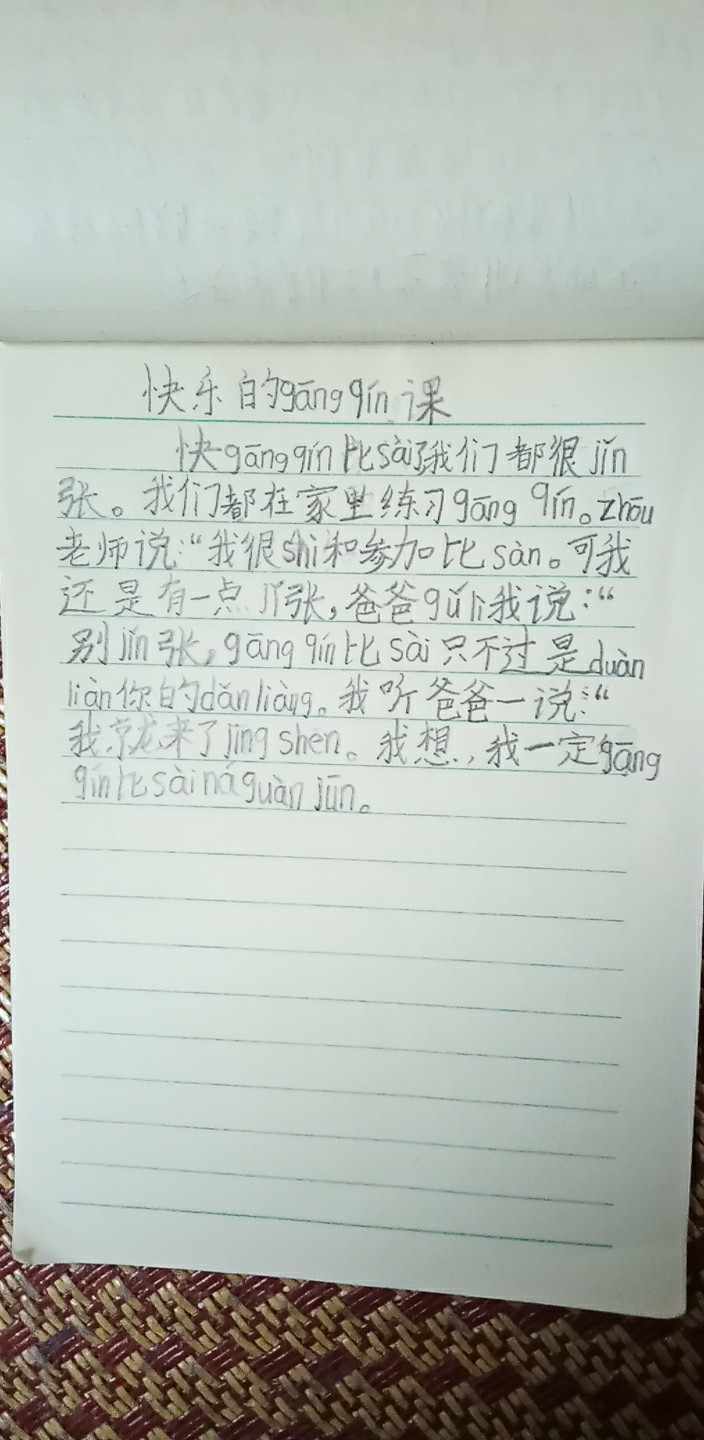 快乐的gāng qín课
快gāng qín比sài了我们都很jǐn
张。我们都在家里练习gāng qín。zhōu
老师说:“我很shì和参加比sàn。可我
还是有一点jǐ张,爸爸gǔ lì我说:“
别jǐn张,gāng qín比sài只不过是duàn
liàn你的dǎn liàng。我听爸爸一说:“
我就来了jīng shen。我想,我一定gāng
qín比sài ná guàn jūn。